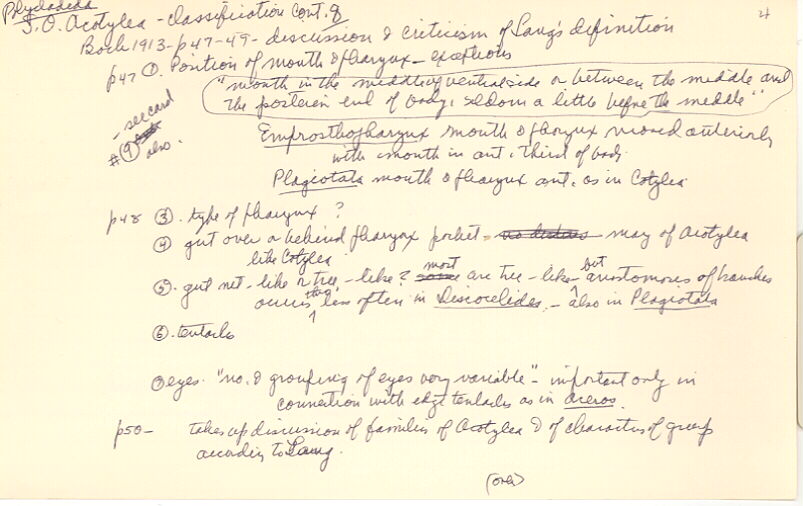 Polycladida
S.O. Acotylea - classification cont. 8
4
Bock 1913 - p 47-49 - discussion & criticism of Lang's definition
p47 ①. Position of mouth & pharynx - exceptions
"mouth in the middle of ventral side or between the middle and
the posterior end of body, seldom a little before the middle"
- see card
# ⑨ also.
Emprosthopharynx mouth & pharynx moved anteriorly
with mouth in ant. third of body
Plagiotata mouth & pharynx ant. as in Cotylea
p48 ③. type of pharynx?
④ gut over or behind pharynx pocket - many of Acotylea
like Cotylea
⑤. gut net-like or tree-like? most are tree-like - but anastomoses of branches
occurs less often in Discocelides. - also in Plagiotata
⑥. tentacles
eyes. "no. & grouping of eyes very variable" - important only in
connection with edge tentacles as in
p50 - takes up discussion of families of Acotylea & of characters of group
according to Lang.
(over)